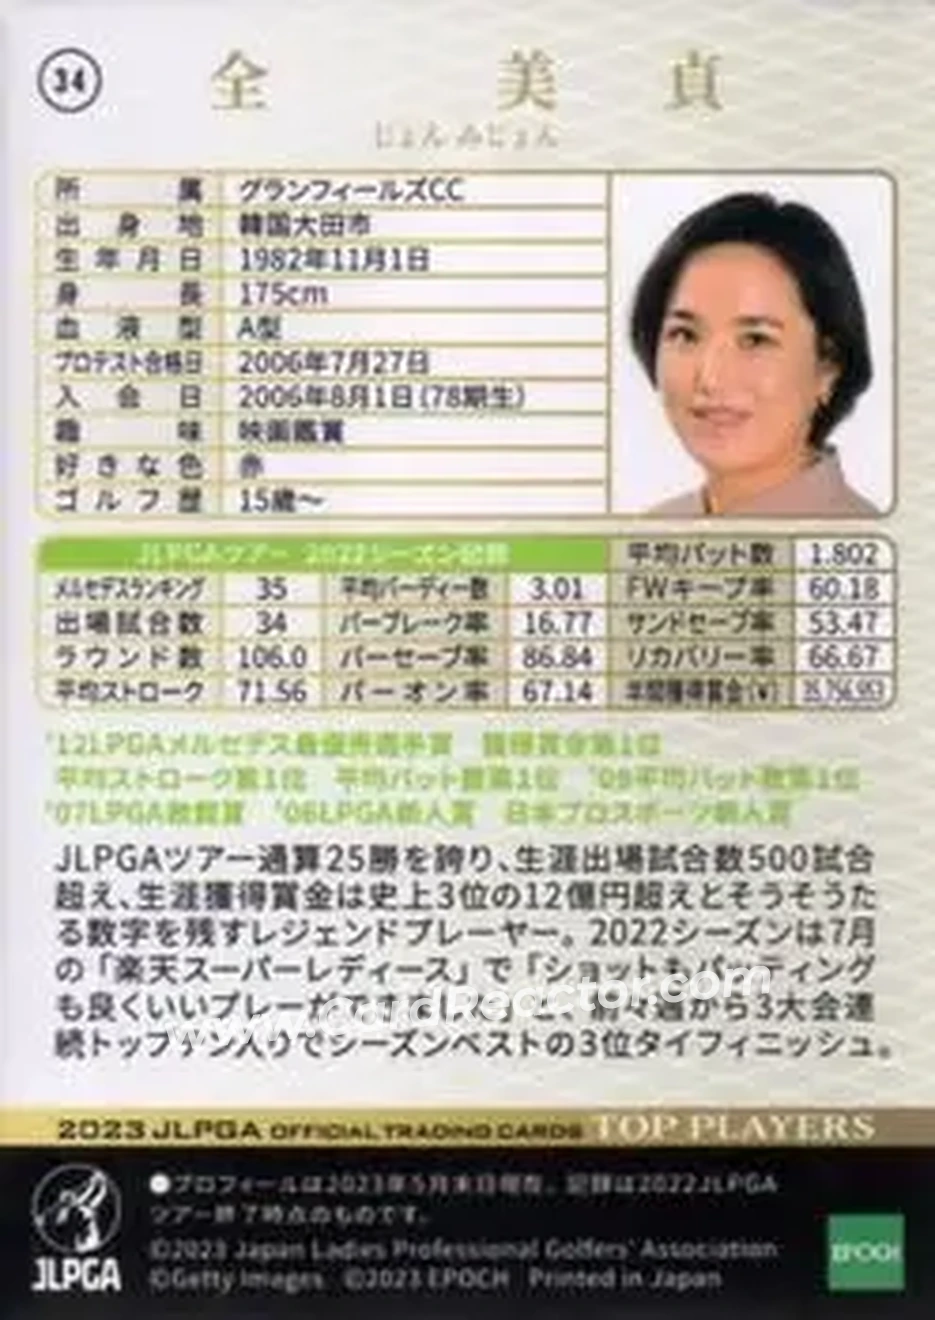 34
全 美貞
じょん みじょん
所属 グランフィールズCC
出身地 韓国大田市
生年月日 1982年11月1日
身長 175cm
血液型 A型
プロテスト合格日 2006年7月27日
入会日 2006年8月1日(78期生)
趣味 映画鑑賞
好きな色 赤
ゴルフ歴 15歳〜
JLPGAツアー 2022シーズン記録 平均パット数 1.802
メルセデスランキング 35 平均バーディー数 3.01 FWキープ率 60.18
出場試合数 34 パーブレーク率 16.77 サンドセーブ率 53.47
ラウンド数 106.0 パーセーブ率 86.84 リカバリー率 66.67
平均ストローク 71.56 パーオン率 67.14 年間獲得賞金(¥) 35,756,953
'12LPGAメルセデス最優秀選手賞 獲得賞金第1位
平均ストローク第1位 平均パット数第1位 '09平均パット数第1位
'07LPGA敢闘賞 '06LPGA新人賞 日本プロスポーツ新人賞
JLPGAツアー通算25勝を誇り、生涯出場試合数500試合
超え、生涯獲得賞金は史上3位の12億円超えとそうそうた
る数字を残すレジェンドプレーヤー。2022シーズンは7月
の「楽天スーパーレディース」で「ショットもパッティング
も良くいいプレーができました」と、前々週から3大会連
続トップテン入りでシーズンベストの3位タイフィニッシュ。
www.CardReactor.com
2023 JLPGA OFFICIAL TRADING CARDS TOP PLAYERS
●プロフィールは2023年5月末日現在、記録は2022JLPGA
ツアー終了時点のものです。
©2023 Japan Ladies Professional Golfers' Association
©Getty Images ©2023 EPOCH Printed in Japan
JLPGA
EPOCH